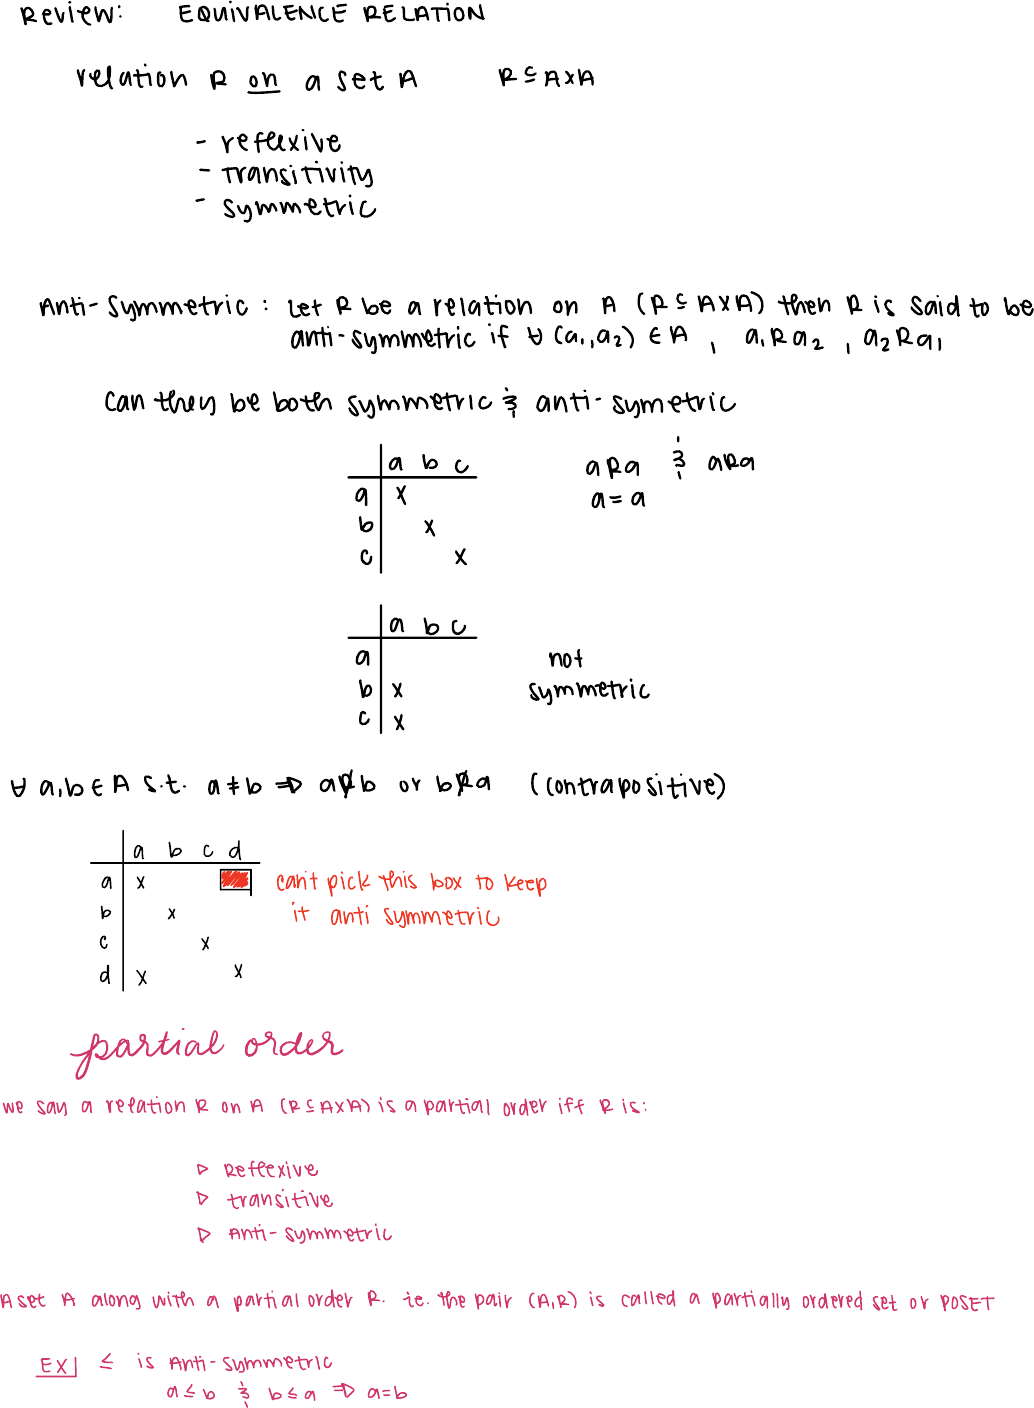 Review: EQUIVALENCE RELATION
relation R on a set A R ⊆ A×A
- reflexive
- Transitivity
- symmetric
Anti-Symmetric : Let R be a relation on A (R ⊆ A×A) then R is said to be
anti-symmetric if ∀ (a₁,a₂) ∈ A , a₁Ra₂ , a₂Ra₁
Can they be both symmetric & anti-symetric
a b c
a x
b x
c x
aRa & aRa
a = a
a b c
a
b x
c x
not
symmetric
∀ a,b ∈ A s.t. a ≠ b ⇒ aR̸b or bR̸a (contrapositive)
a b c d
a x
b x
c x
d x x
can't pick this box to keep
it anti symmetric
partial order
we say a relation R on A (R ⊆ A×A) is a partial order iff R is:
▷ Reflexive
▷ transitive
▷ Anti-symmetric
A set A along with a partial order R. ie. the pair (A,R) is called a partially ordered set or POSET
EX| ≤ is Anti-symmetric
a ≤ b & b ≤ a ⇒ a=b